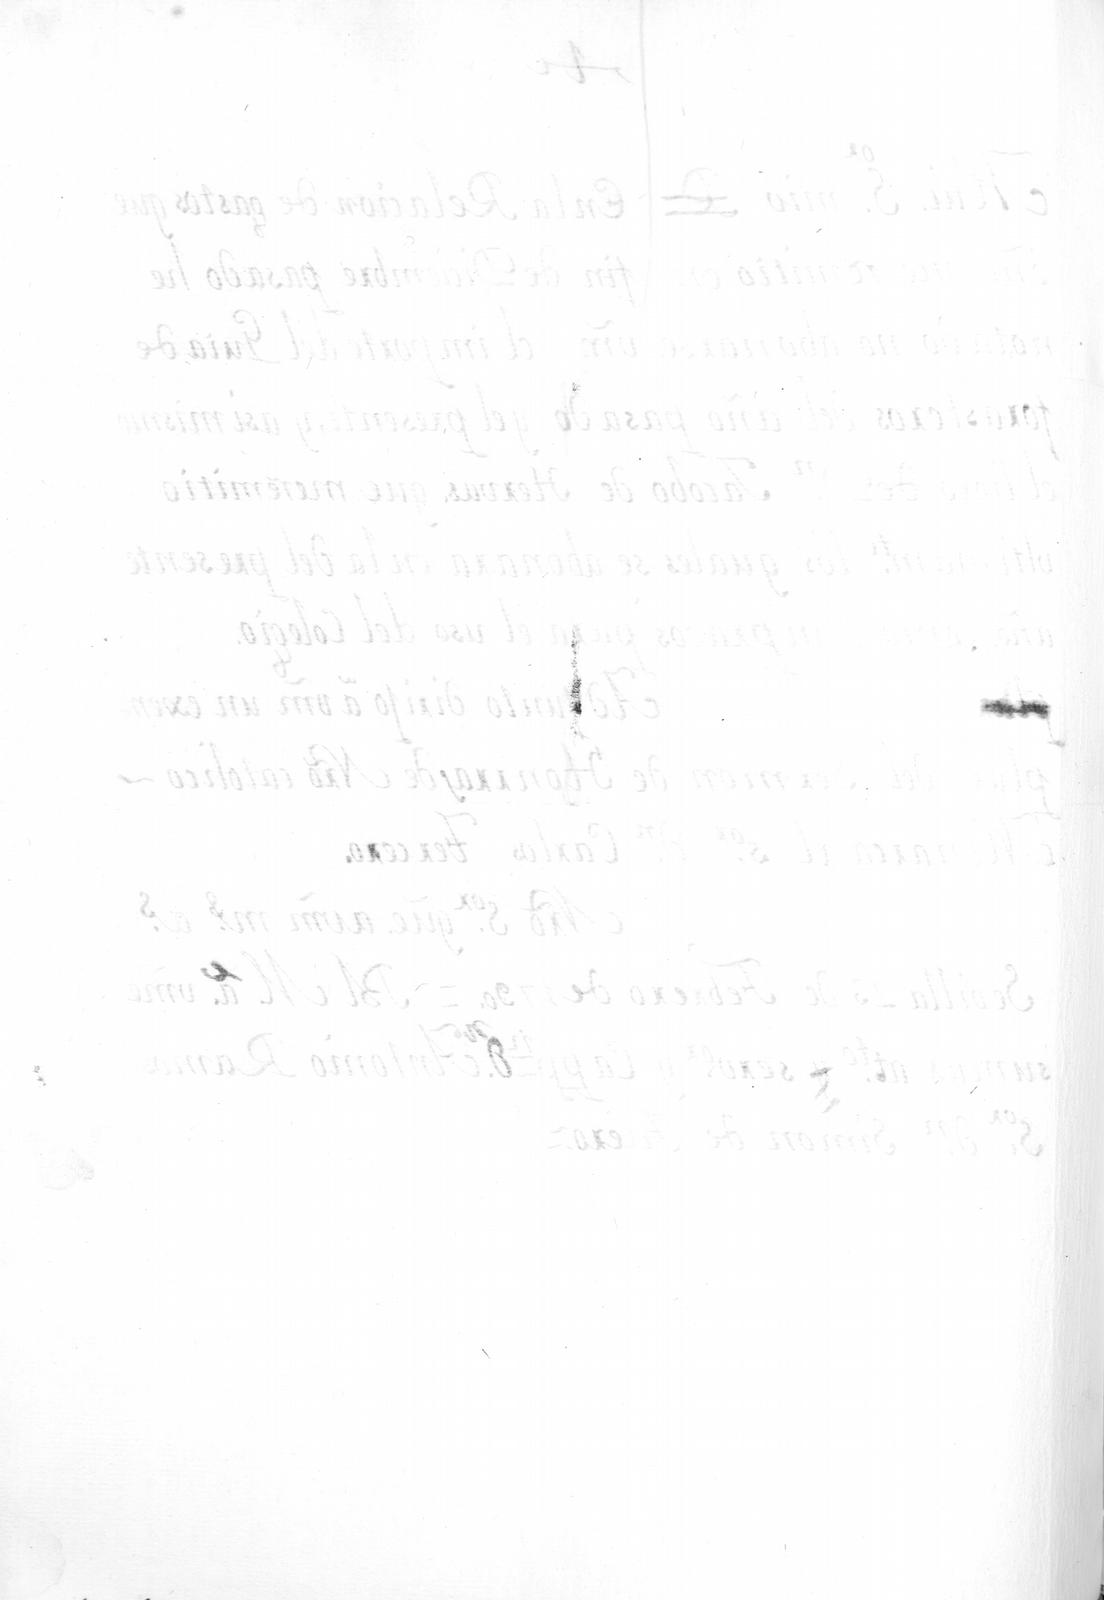 Mui S.or mio = En la Relacion de gastos que
me remitio en fin de Diciembre pasado he
notado no abonarse vm̃ el importe del Guia de
forasteros del año pasado y el presente, y asimismo
el de D.n Jacobo de Hervas, que me remitio
ultimam.te los quales se abonara en la del presente
año, para el uso del Colegio.
Adjunto dirijo â vm̃ un exem-
plar del Sermon de Honrras de Nrõ catolico
Monarca el S.or D.n Carlos Tercero.
Nrõ S.or güe. a vm̃ m.s a.s
Sevilla 23 de Febrero de 1790. = B L M. â. vm̃
su mas at.to serv.or y Capp.n D.r Antonio Ramos
S.or D.n Simon de =